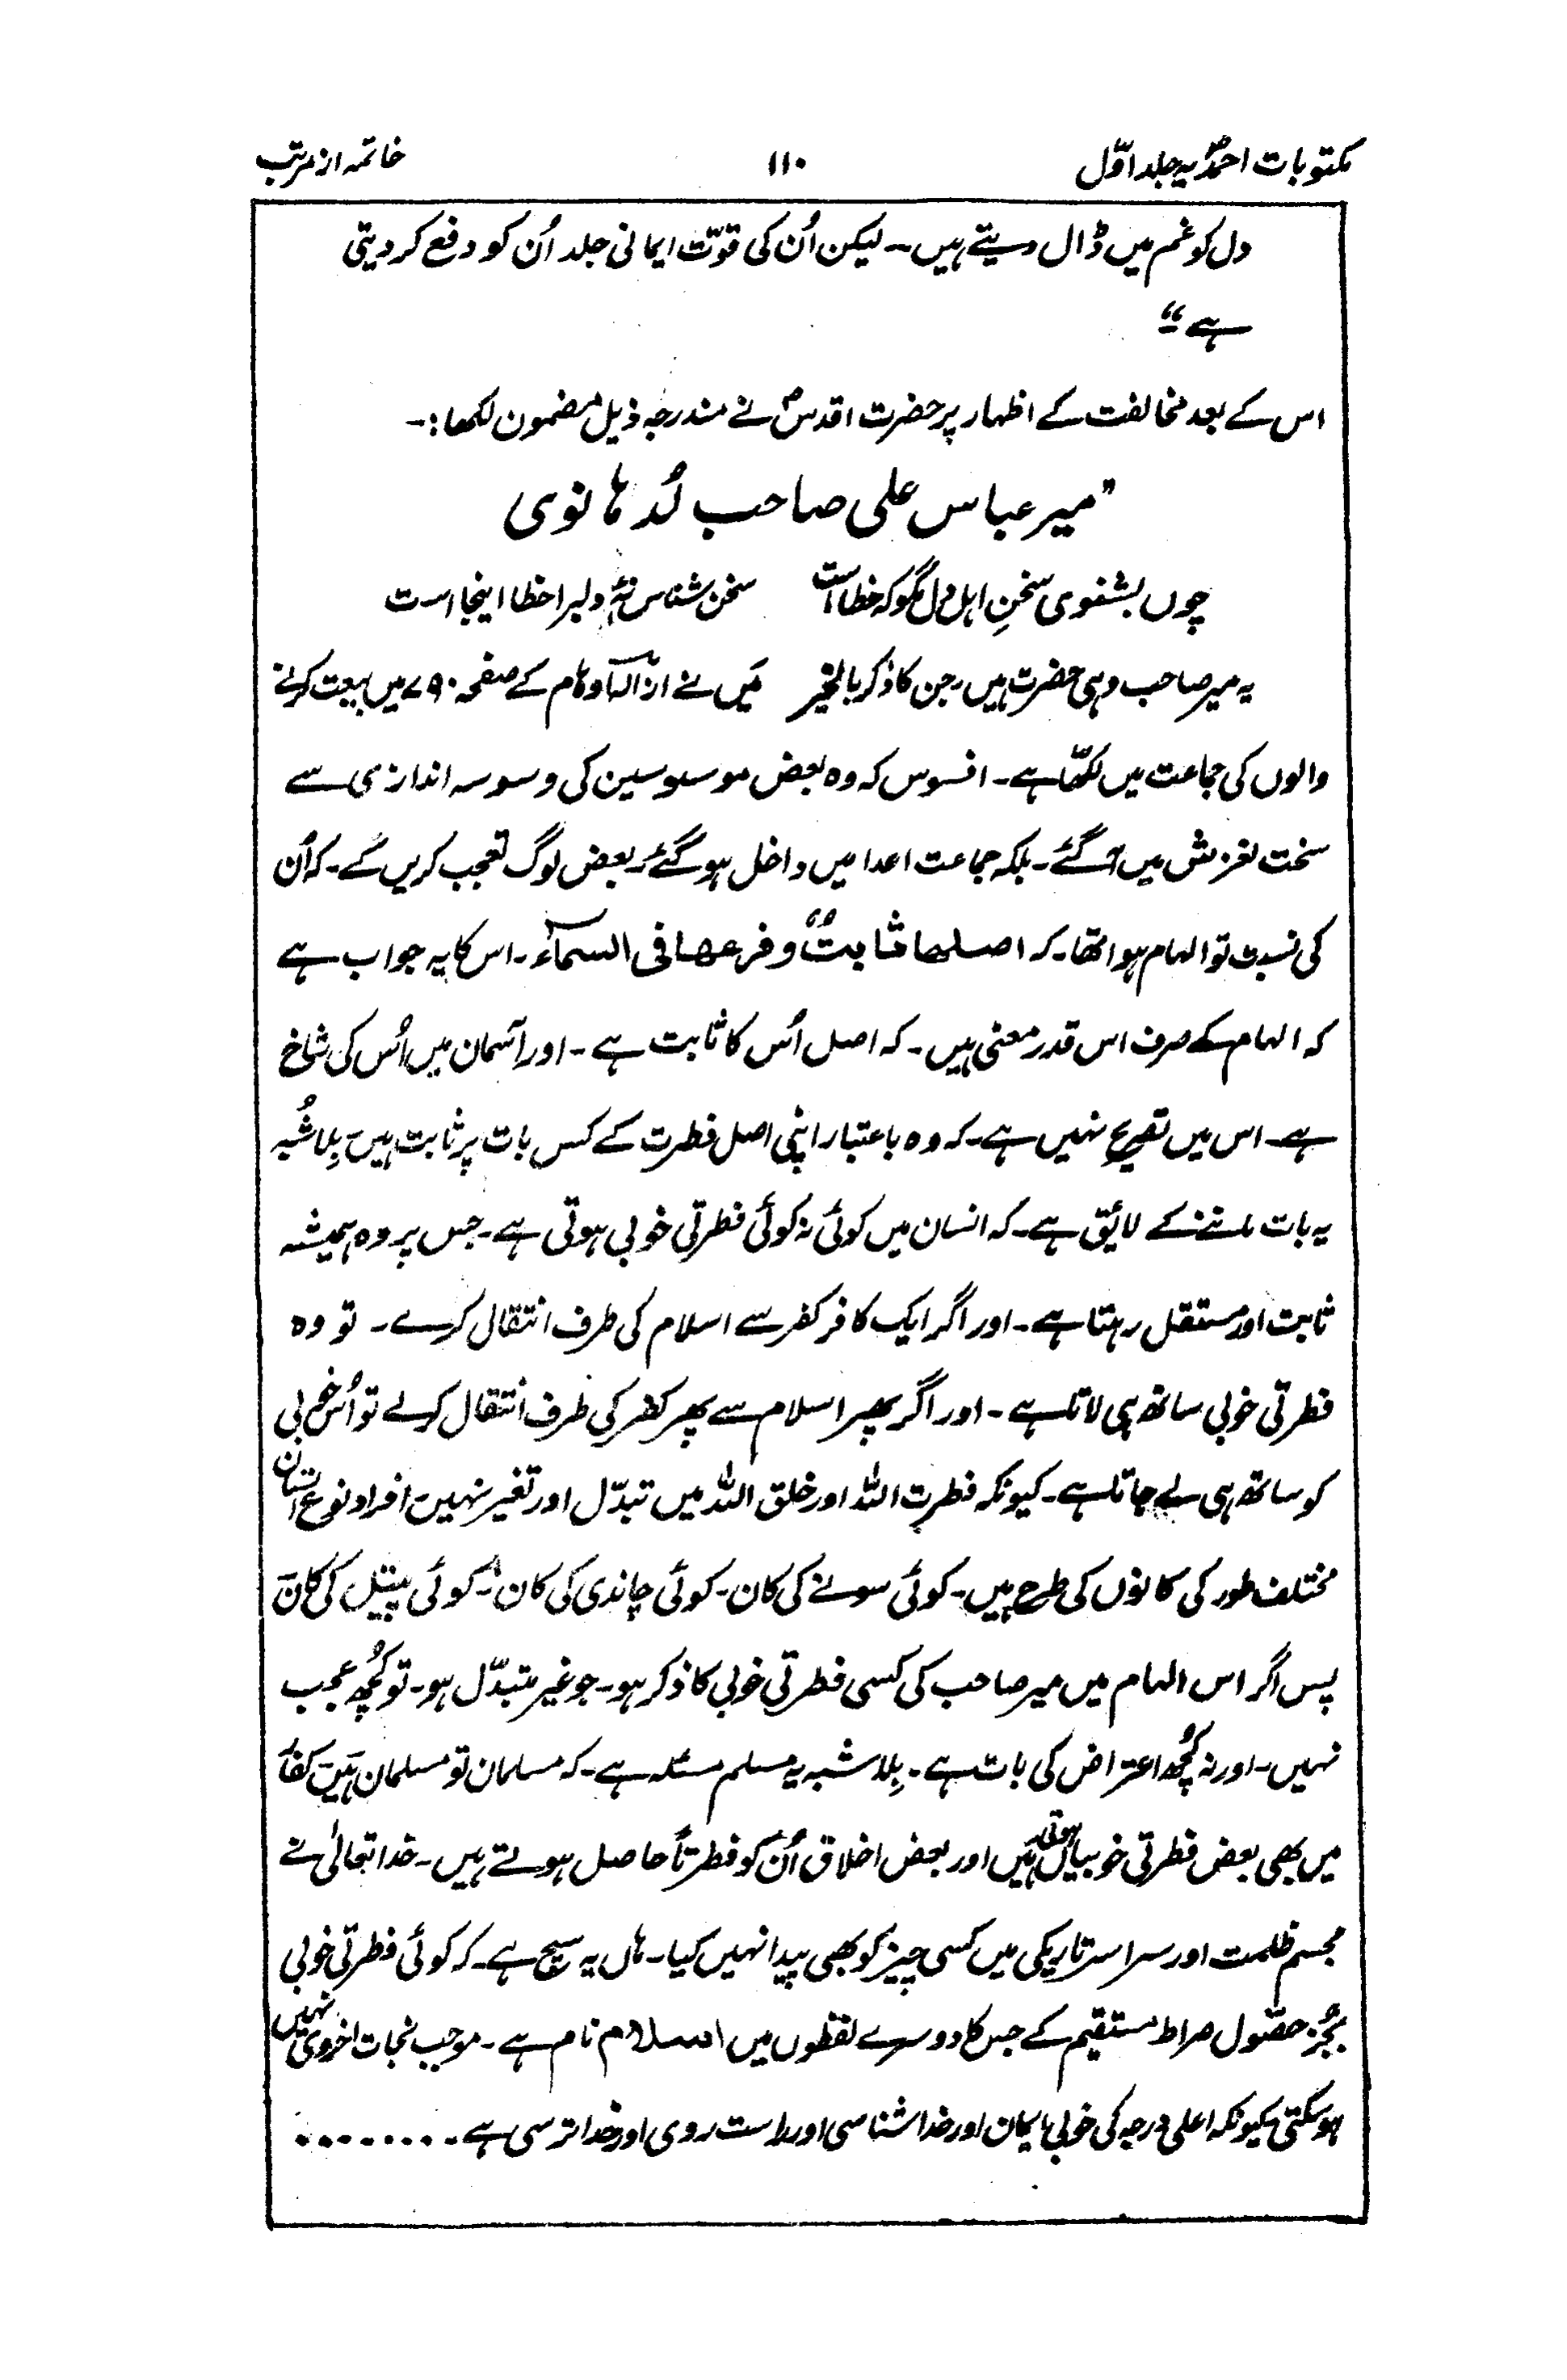 مکتوبات احمدیہ جلد اوّل
۱۱۰
خاتمہ از مرتب
دل کو غم میں ڈال دیتے ہیں۔۔ لیکن اُن کی قوّت ایمانی جلد اُن کو دفع کر دیتی
ہے“
اس کے بعد مخالفت کے اظہار پر حضرت اقدسؑ نے مندرجہ ذیل مضمون لکھا:۔
”میر عباس علی صاحب لُدہانوی
چوں بشنوی سخنِ اہل دل مگو کہ خطا است    سخن شناس نۂ دلبرا خطا اینجا است
یہ میر صاحب وہی حضرت ہیں۔ جن کا ذکر بالخیر مَیں نے ازالہ اوہام کے صفحہ ۷۹۰ میں بیعت کرنے
والوں کی جماعت میں لکھّا ہے۔ افسوس کہ وہ بعض موسوسین کی وسوسہ اندازی سے
سخت لغزش میں آگئے۔ بلکہ جماعت اعدا میں داخل ہو گئے۔ بعض لوگ تعجب کریں گے۔ کہ اُن
کی نسبت تو الہام ہوا تھا۔ کہ اصلھا ثابتٌ و فرعھا فی السمآء۔ اس کا یہ جواب ہے
کہ الہام کے صرف اس قدر معنی ہیں۔ کہ اصل اُس کا ثابت ہے۔ اور آسمان میں اُس کی شاخ
ہے۔ اس میں تصریح نہیں ہے۔ کہ وہ باعتبار اپنی اصل فطرت کے کس بات پر ثابت ہیں۔ بِلا شُبہ
یہ بات ماننے کے لائق ہے۔ کہ انسان میں کوئی نہ کوئی فطرتی خوبی ہوتی ہے۔ جس پر وہ ہمیشہ
ثابت اور مستقل رہتا ہے۔ اور اگر ایک کافر کفر سے اسلام کی طرف انتقال کرے۔ تو وہ
فطرتی خوبی ساتھ ہی لاتا ہے۔ اور اگر پھر اسلام سے پھر کفر کی طرف انتقال کرے تو اُس خوبی
کو ساتھ ہی لے جاتا ہے۔ کیونکہ فطرت اللہ اور خلق اللہ میں تبدّل اور تغیر نہیں۔ افراد نوع انسان
مختلف طور کی کانوں کی طرح ہیں۔ کوئی سونے کی کان۔ کوئی چاندی کی کان۔ کوئی پیتل کی کان۔
پس اگر اس الہام میں میر صاحب کی کسی فطرتی خوبی کا ذکر ہو۔ جو غیر متبدّل ہو۔ تو کُچھ عجب
نہیں۔ اور نہ کُچھ اعتراض کی بات ہے۔ بِلا شبہ یہ مسلم مسئلہ ہے۔ کہ مسلمان تو مسلمان ہیں۔ کفار
میں بھی بعض فطرتی خوبیاں ہوتی ہیں اور بعض اخلاق اُن کو فطرتاً حاصل ہوتے ہیں۔ خدا تعالیٰ نے
مجسم ظلمت اور سراسر تاریکی میں کسی چیز کو بھی پیدا نہیں کیا۔ ہاں یہ سچ ہے۔ کہ کوئی فطرتی خوبی
بجُز حصُول صراط مستقیم کے جس کا دوسرے لفظوں میں اسلام نام ہے۔ موجب نجات اخروی نہیں
ہو سکتی کیونکہ اعلیٰ درجہ کی خوبی ایمان اور خدا شناسی اور راست روی اور خدا ترسی ہے۔۔۔۔۔۔۔۔۔